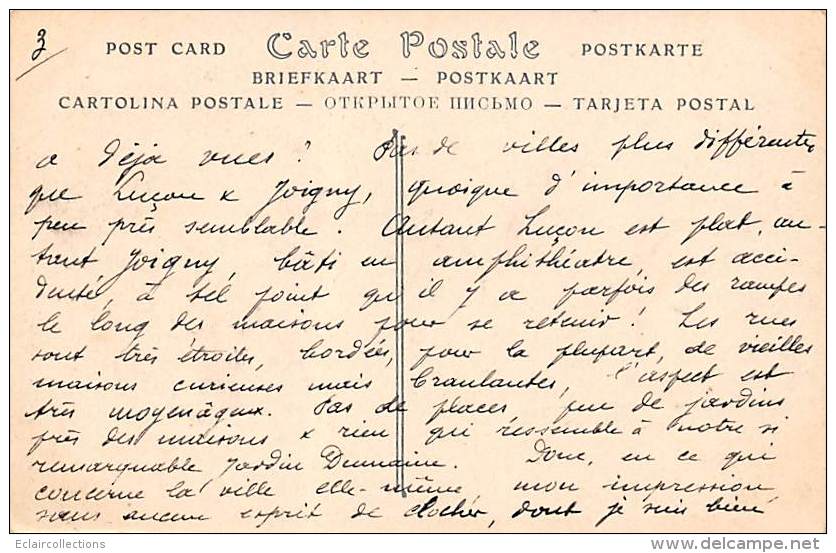 3/
POST CARD Carte Postale POSTKARTE
BRIEFKAART — POSTKAART
CARTOLINA POSTALE — ОТКРЫТОЕ ПИСЬМО — TARJETA POSTAL
a déjà vues ? Pas de villes plus différentes
que Luçon & Joigny, quoique d'importance à
peu près semblable. Autant Luçon est plat, au-
tant Joigny, bâti en amphithéatre est acci-
denté, à tel point qu'il y a parfois des rampes
le long des maisons pour se retenir ! Les rues
sont très étroites, bordées, pour la plupart, de vieilles
maisons curieuses mais branlantes, l'aspect est
très moyenâgeux. Pas de places, peu de jardins
près des maisons & rien qui ressemble à notre si
remarquable Jardin Dumaine. Donc, en ce qui
concerne la ville elle-même mon impression
sans aucun esprit de clocher, dont je suis bien
Eclaircollections
www.delcampe.net